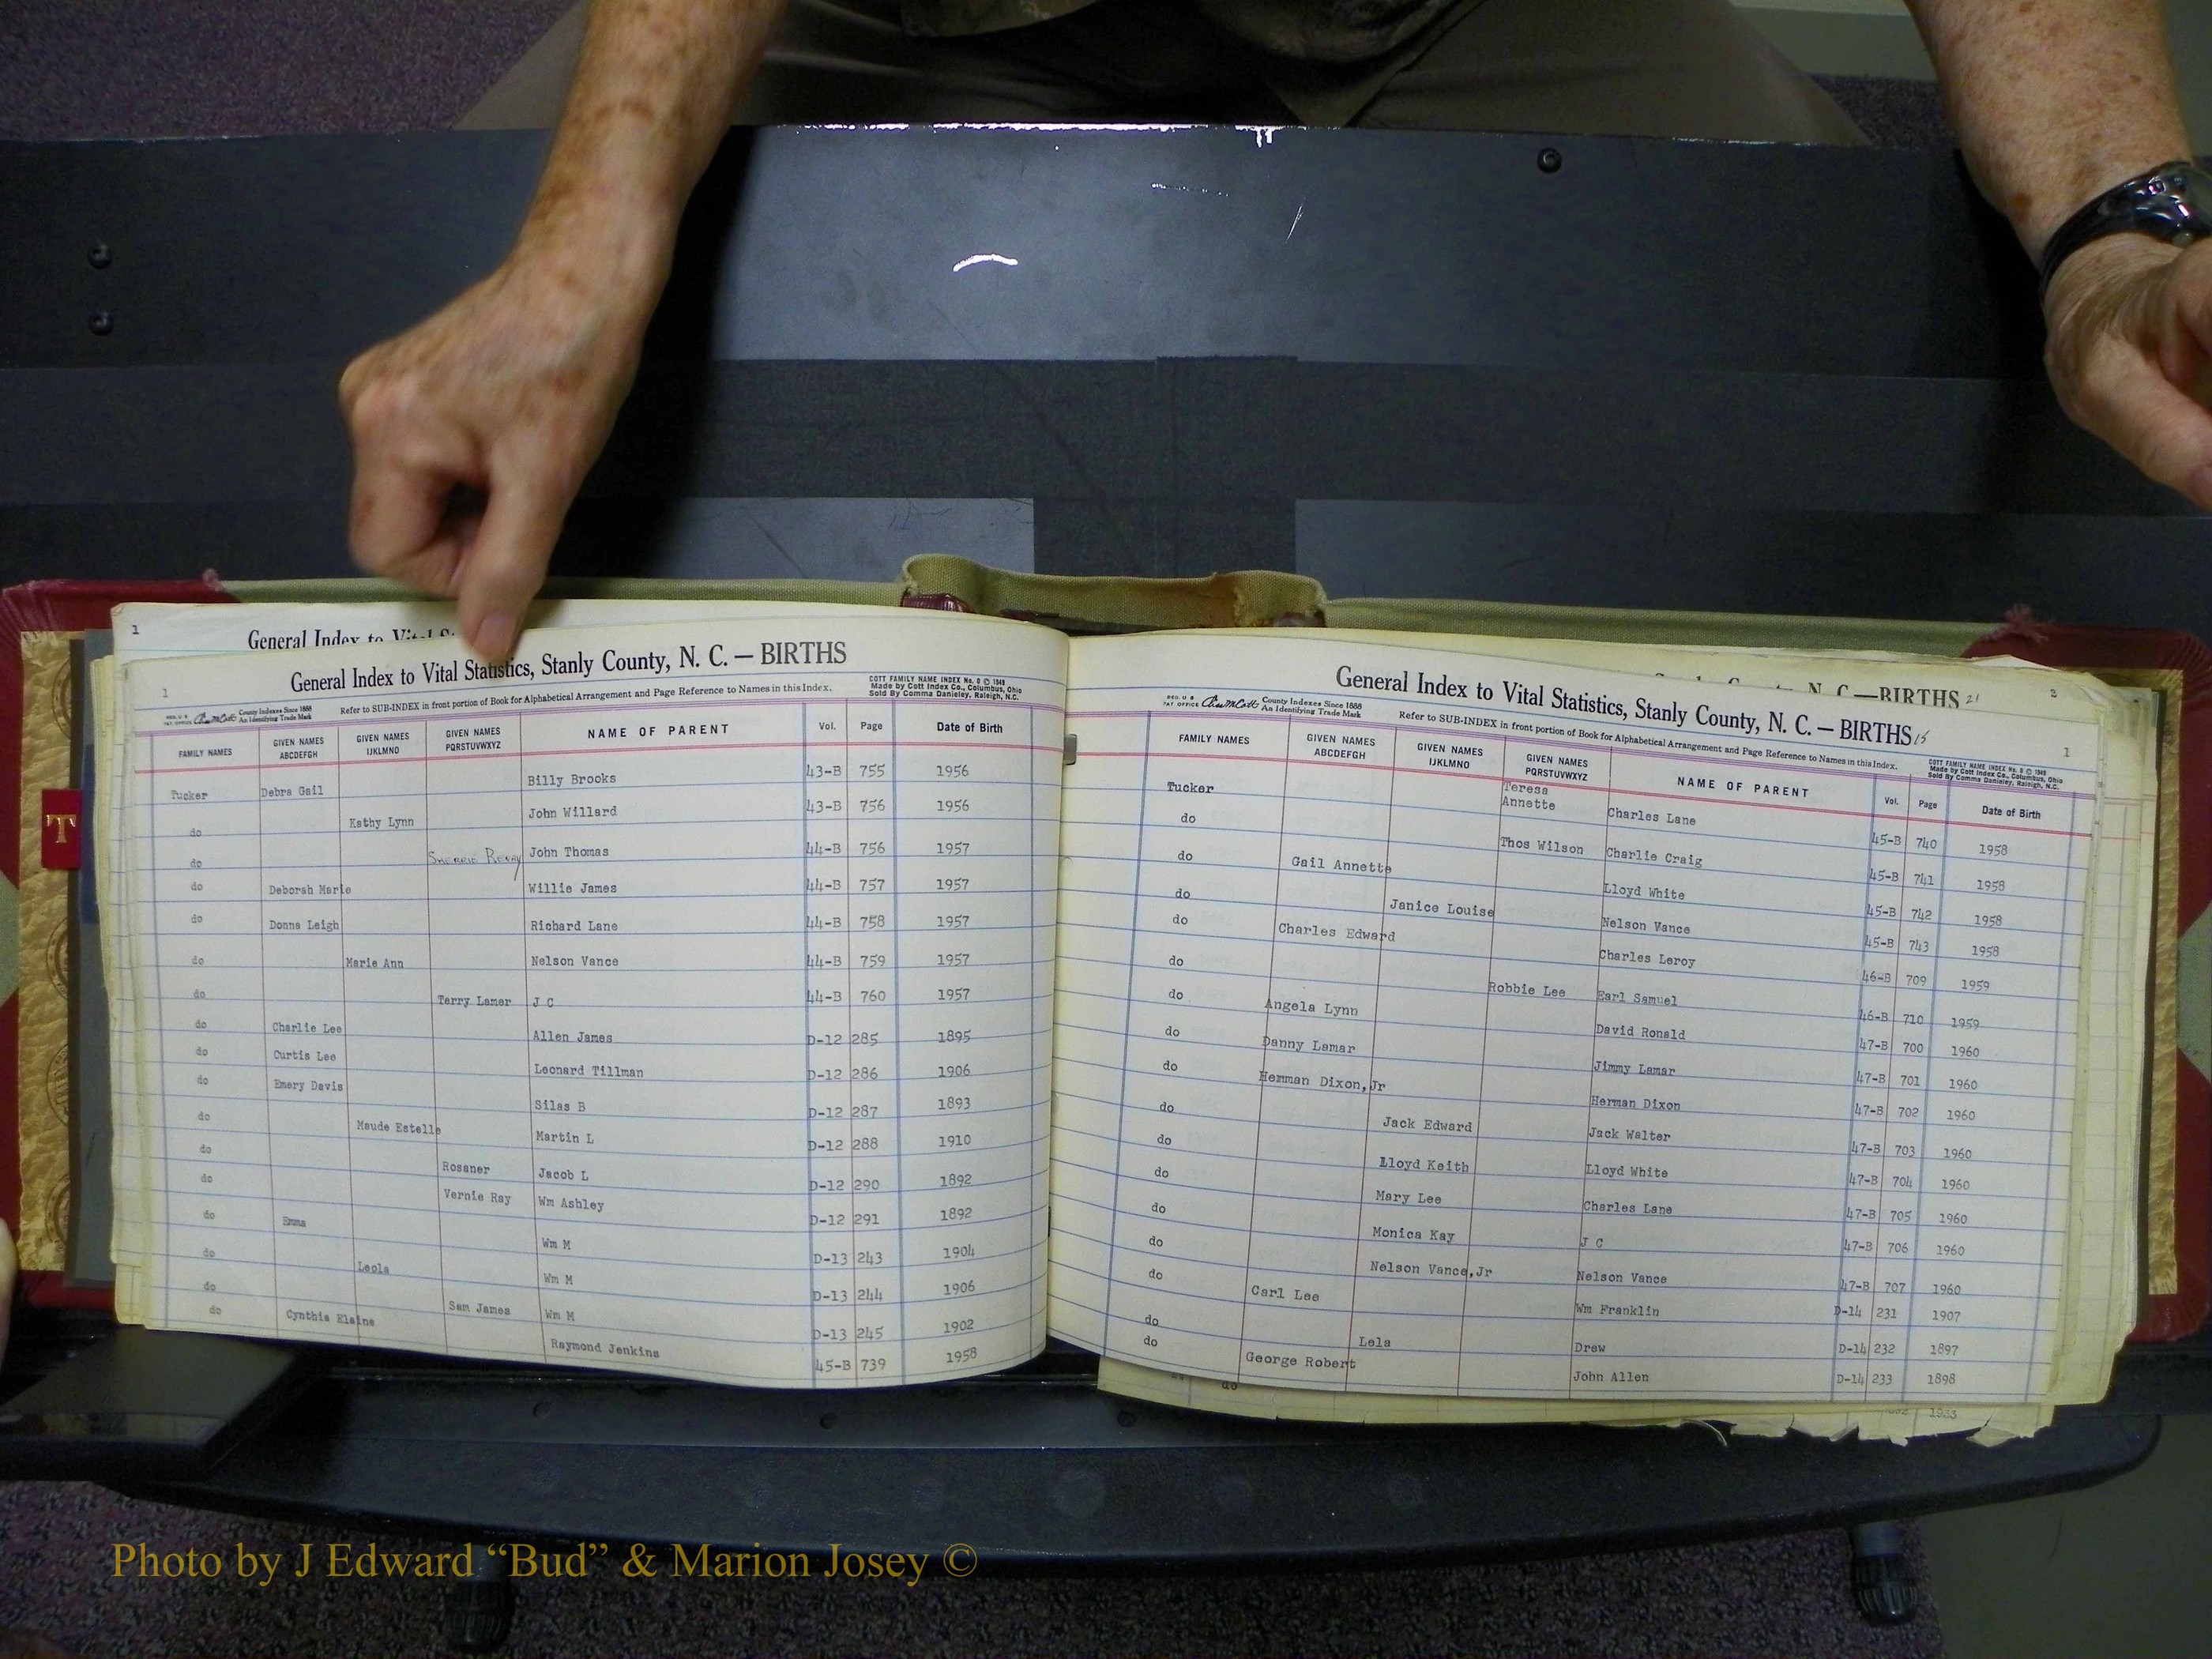 1
General Index to Vital St
1
General Index to Vital Statistics, Stanly County, N. C. — BIRTHS
REG. U S PAT OFFICE County Indexes Since 1888 An Identifying Trade Mark
Refer to SUB-INDEX in front portion of Book for Alphabetical Arrangement and Page Reference to Names in this Index.
COTT FAMILY NAME INDEX No. 0 © 1949
Made by Cott Index Co., Columbus, Ohio
Sold By Comma Danieley, Raleigh, N.C.
FAMILY NAMES GIVEN NAMES ABCDEFGH GIVEN NAMES IJKLMNO GIVEN NAMES PQRSTUVWXYZ NAME OF PARENT Vol. Page Date of Birth
Tucker Debra Gail Billy Brooks 43-B 755 1956
do Kathy Lynn John Willard 43-B 756 1956
do Sherrie Renay John Thomas 44-B 756 1957
do Deborah Marie Willie James 44-B 757 1957
do Donna Leigh Richard Lane 44-B 758 1957
do Marie Ann Nelson Vance 44-B 759 1957
do Terry Lamer J C 44-B 760 1957
do Charlie Lee Allen James D-12 285 1895
do Curtis Lee Leonard Tillman D-12 286 1906
do Emery Davis Silas B D-12 287 1893
do Maude Estelle Martin L D-12 288 1910
do Rosaner Jacob L D-12 290 1892
do Vernie Ray Wm Ashley D-12 291 1892
do Emma Wm M D-13 243 1904
do Leola Wm M D-13 244 1906
do Sam James Wm M D-13 245 1902
do Cynthia Elaine Raymond Jenkins 45-B 739 1958
T
N. C.—BIRTHS 21
3
General Index to Vital Statistics, Stanly County, N. C. — BIRTHS 15
1
REG. U S PAT OFFICE County Indexes Since 1888 An Identifying Trade Mark
Refer to SUB-INDEX in front portion of Book for Alphabetical Arrangement and Page Reference to Names in this Index.
COTT FAMILY NAME INDEX No. 0 © 1949
Made by Cott Index Co., Columbus, Ohio
Sold By Comma Danieley, Raleigh, N.C.
FAMILY NAMES GIVEN NAMES ABCDEFGH GIVEN NAMES IJKLMNO GIVEN NAMES PQRSTUVWXYZ NAME OF PARENT Vol. Page Date of Birth
Tucker Teresa Annette Charles Lane 45-B 740 1958
do Thos Wilson Charlie Craig 45-B 741 1958
do Gail Annette Lloyd White 45-B 742 1958
do Janice Louise Nelson Vance 45-B 743 1958
do Charles Edward Charles Leroy 46-B 709 1959
do Robbie Lee Earl Samuel 46-B 710 1959
do Angela Lynn David Ronald 47-B 700 1960
do Danny Lamar Jimmy Lamar 47-B 701 1960
do Herman Dixon,Jr Herman Dixon 47-B 702 1960
do Jack Edward Jack Walter 47-B 703 1960
do Lloyd Keith Lloyd White 47-B 704 1960
do Mary Lee Charles Lane 47-B 705 1960
do Monica Kay J C 47-B 706 1960
do Nelson Vance,Jr Nelson Vance 47-B 707 1960
do Carl Lee Wm Franklin D-14 231 1907
do Lela Drew D-14 232 1897
do George Robert John Allen D-14 233 1898
do 1933
Photo by J Edward “Bud” & Marion Josey ©